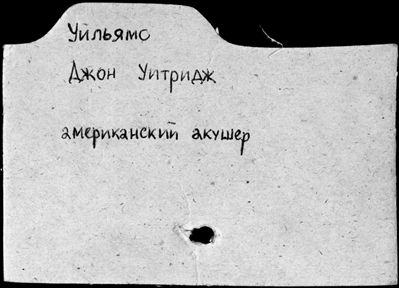 Уильямс
Джон Уитридж
американский акушер